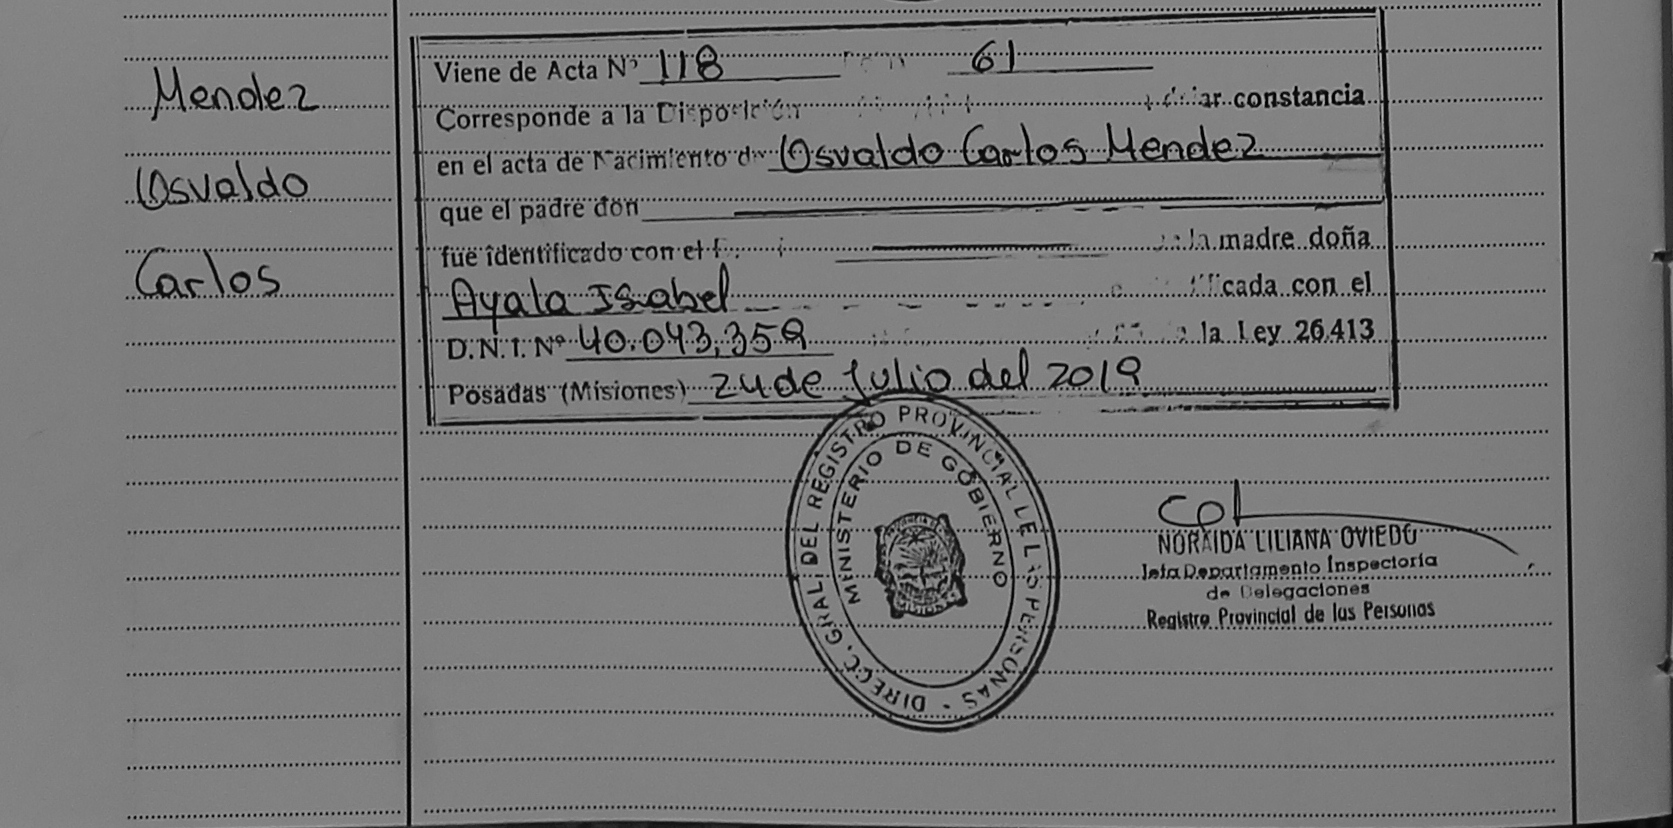 Mendez
Osvaldo
Carlos
Viene de Acta Nº 118 61
Corresponde a la Disposición constancia
en el acta de Nacimiento de Osvaldo Carlos Mendez
que el padre don
fue identificado con el la madre doña
Ayala Isabel cada con el
D.N.I. Nº 40.043,359 la Ley 26.413
Posadas (Misiones) 24 de Julio del 2019
DIRECC. GRAL. DEL REGISTRO PROVINCIAL DE LAS PERSONAS -
MINISTERIO DE GOBIERNO
NORAIDA LILIANA OVIEDO
Jefa Departamento Inspectoria
de Delegaciones
Registro Provincial de las Personas